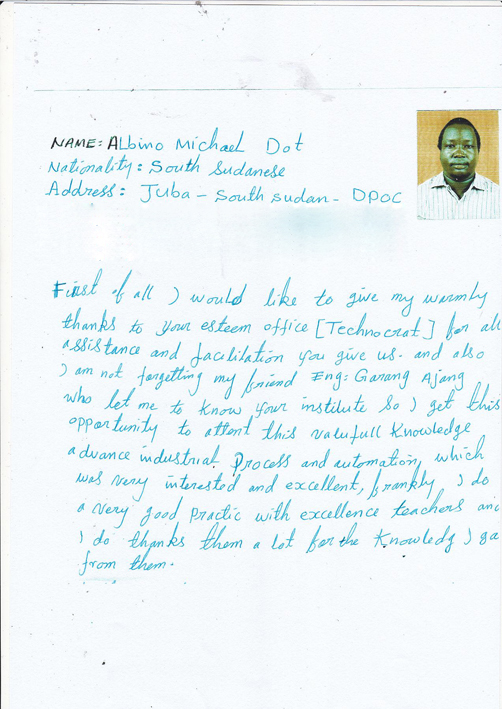 NAME: ALbino Michael Dot
Nationality: South Sudanese
Address: Juba - South Sudan - DPOC
First of all I would like to give my warmly
thanks to your esteem office [Technocrat] for all
assistance and facilitation you give us. and also
I am not forgetting my friend Eng: Garang Ajang
who let me to know your institute so I get this
opportunity to attent this valufull Knowledge
advance industrial Process and automation, which
was very interested and excellent, frankly, I do
a very good practic with excellence teachers and
I do thanks them a lot for the Knowledg I ga
from them.